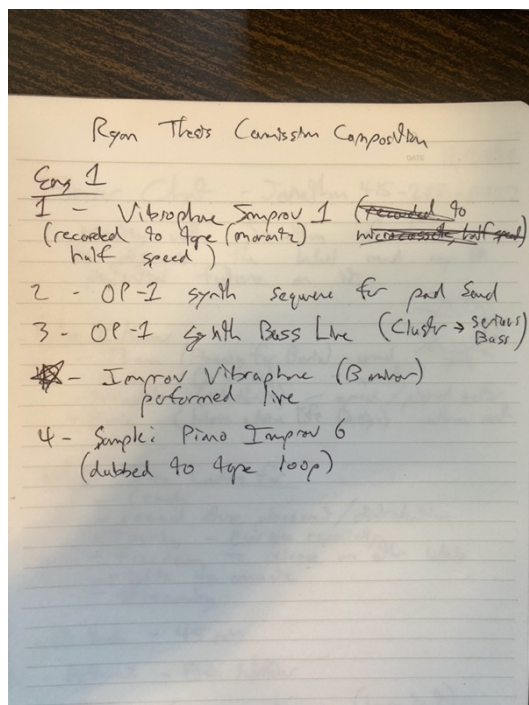 Ryan Thesis Comission Composition
DATE
Song 1
1 - Vibraphone Improv 1 (recorded to
(recorded to tape (marantz) microcassette, half speed)
half speed)
2 - OP-1 synth sequence for pad sound
3 - OP-1 synth Bass Live (Cluster → Serious
Bass)
- Improv Vibraphone (B minor)
performed live
4 - Sample: Piano Improv 6
(dubbed to tape loop)